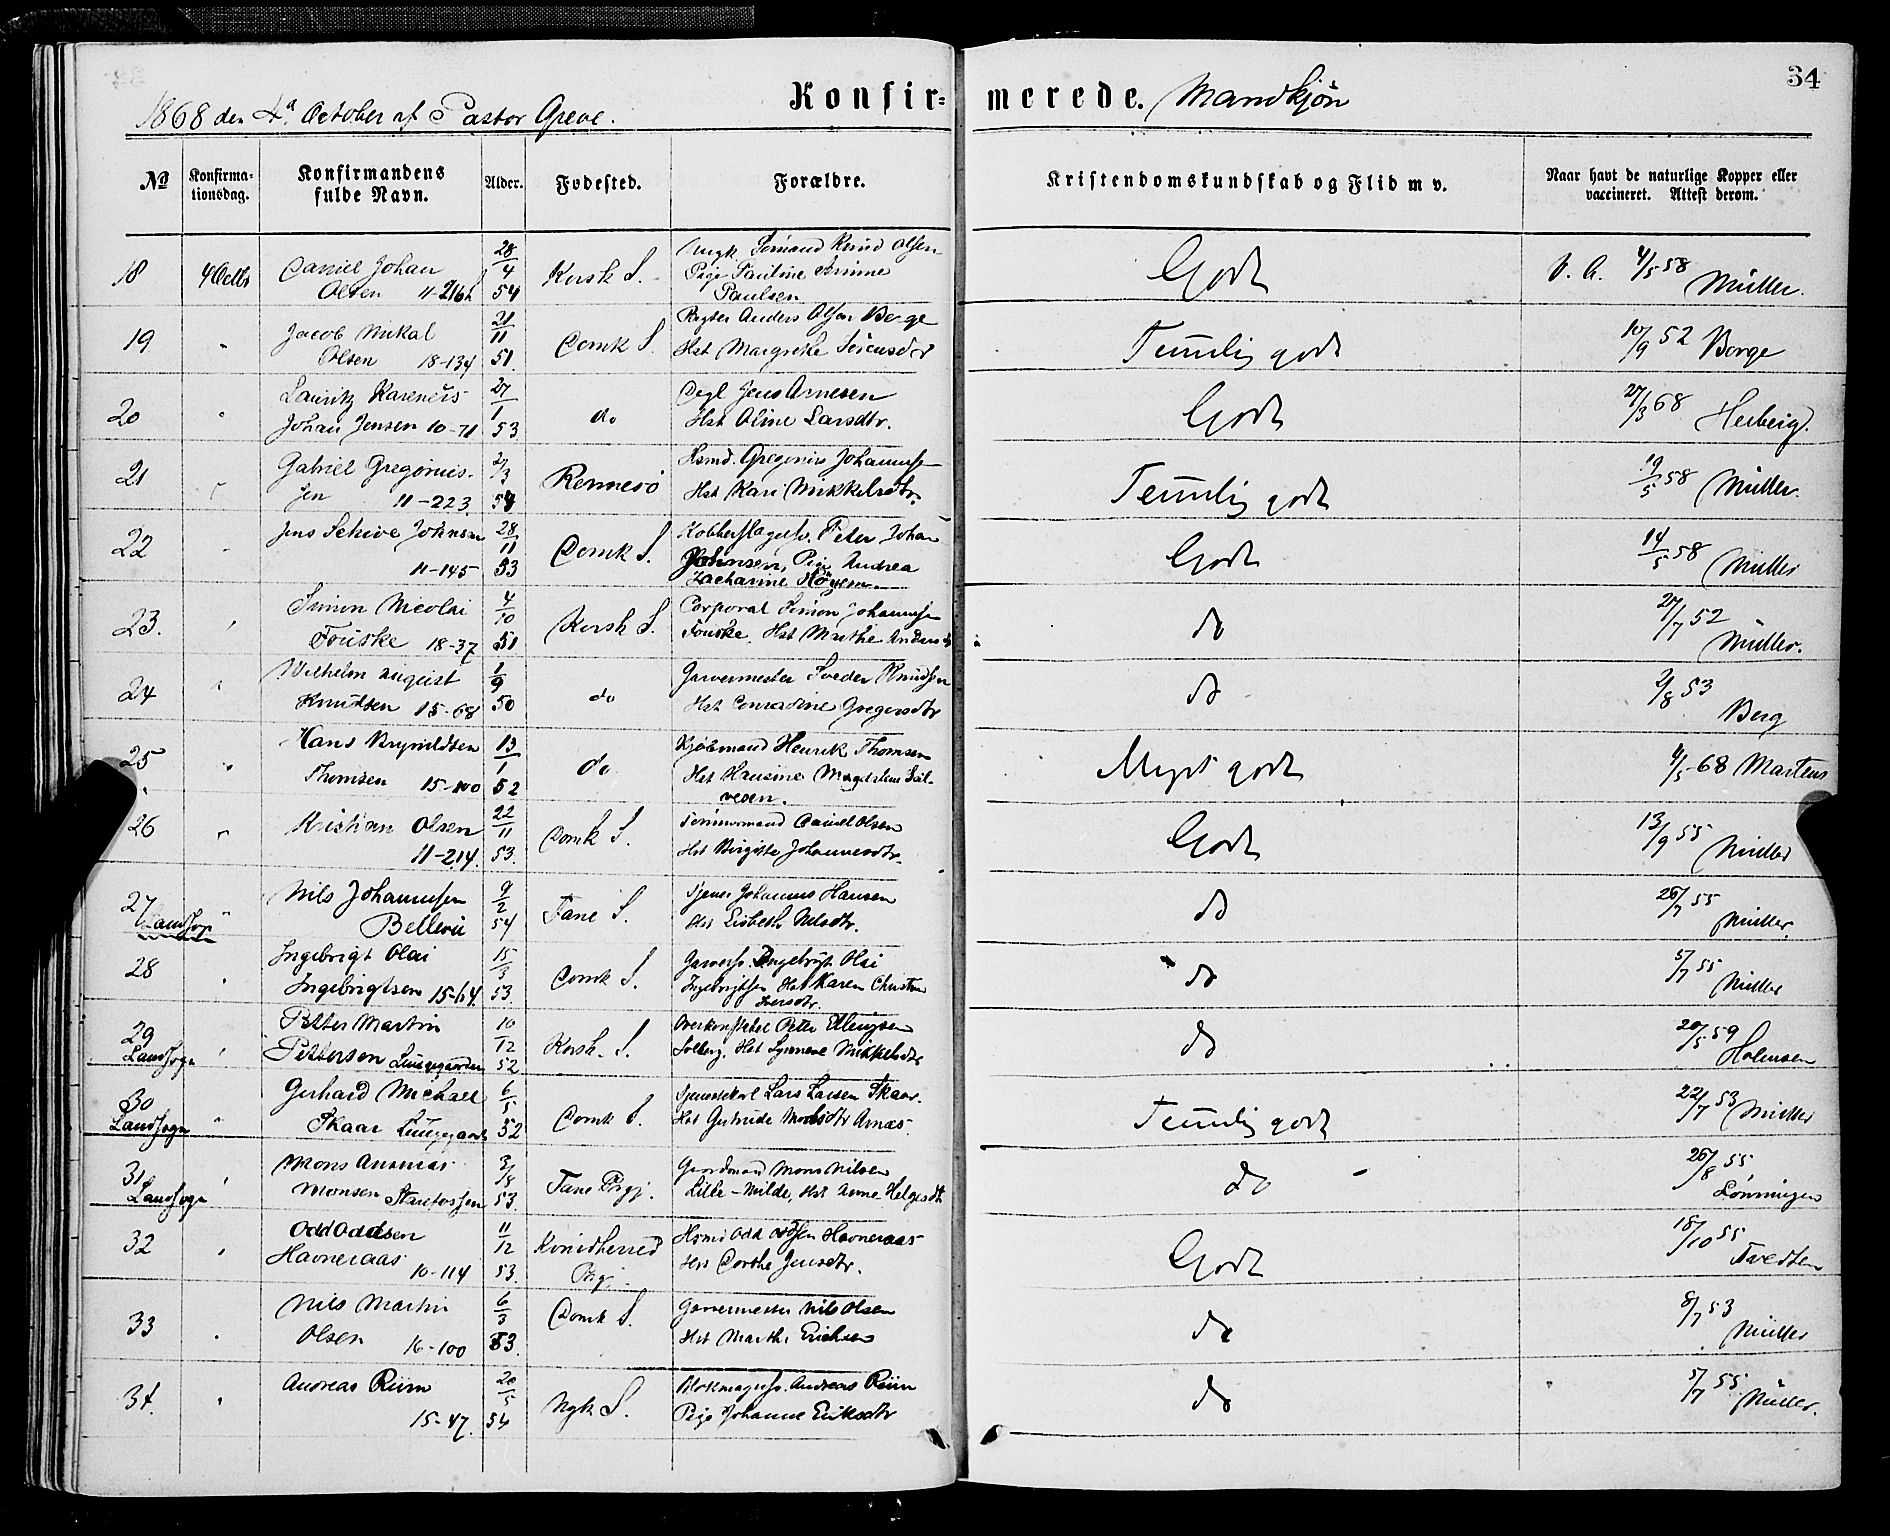 34
Konfirmerede. Mandkjøn
1868 den 4d. October af Pastor Greve.
No Konfirmationsdag. Konfirmandens fulde Navn. Alder. Fødested. Forældre. Kristendomskundskab og Flid m v. Naar havt de naturlige Kopper eller vaccineret. Attest derom.
18 4 Octbr Daniel Johan 28/4 Korsk S. Ungk Sømand Olsen Godt 4/5 58 Müller.
Olsen 11-216 54 Pige Pauline
Paulsen
19 " Jacob Mikal 21/11 Domk S. Anders Olsen Borge Temmelig godt 10/9 52 Borge
Olsen 18-134 51. Hst Margrethe
20 " Lauritz 27/1 do Jens Arnesen Godt 27/3 68 Herberg.
Johan Jensen 10-71 53 Hst Oline Larsdtr.
21 " Gabriel Gregorius- 2/3 Rennesö Hsmd. Gregorius Johannesen Temmelig godt 19/5 58 Müller.
sen 11-223 54 Hst Kari Mikkelsdtr.
22 " Jens Schive Johnsen 28/11 Domk S. Kobberslagersv. Peter Johan Godt 14/5 58 Müller
11-145 53 Johnsen, Pige Andrea
Zacharine
23. " Simon Nicolai 4/10 Korsk S. Corporal Simon Johannesen do 27/7 52 Müller.
Fouske 18-37 51 Fouske. Hst Marthe Andersdtr
24 " Wilhelm August 1/9 do Garvermester Knudsen do 2/8 53 Berg
Knudsen 15-68 50 Hst Conradine Gregersdtr
25 " Hans Brynildsen 13/1 do Kjøbmand Henrik Thomsen Meget godt 4/5 68 Martens
Thomsen 15-100 52 Hst Hansine Magdalene Sal-
vesen.
26 " Kristian Olsen 22/11 Domk S. Daniel Olsen Godt 13/9 55 Müller
11-214. 53. Hst Birgitte Johannesdtr.
27 " Nils Johannesen 9/2 Fane S. Tjener Johannes Hansen do 26/7 55 Müller.
Landsogn Bellevue 54 Hst Lisbeth Nilsdtr.
28 " Ingebrigt Olai 15/3 Domk S. Garversv. Ingebrigt Olai do 5/7 55 Müller
Ingebrigtsen 15-64. 53. Ingebrigtsen Hst Karen Christine
Iversdtr.
29 " Petter Martin 10/12 Korsk. S. Overkonstabel Peter Ellingsen do 20/5 59 Holmsen
Landsogn Pettersen Lungegaarden 52 Solberg. Hst Synneve Mikkelsdtr
30 " Gerhard Michael 6/5 Domk S. Tjenestekarl Lars Larsen Skaar. Temmelig godt 22/7 53 Müller
Landsogn Skaar Lungegaarden 52 Hst Gertrude Monsdtr Arnas.
31 " Mons Andreas 3/8 Fane Prgj. Gaardmand Mons Nilsen do 26/8 55 Lønningen
Landsogn Monsen Starefossen 53. Lille-Milde, Hst Anne Helgesdtr
32 " Odd Oddsen 11/12 Konidherred Hsmd Odd Oddsen Havneraas Godt 18/10 55 Tvedten
Havneraas 10-114 53. Prgj. Hst Dorthe Jensdtr.
33 " Nils Martin 6/3 Domk S. Garvermester Nils Olsen do 8/7 53 Müller
Olsen 16-100 53. Hst Marthe Erichsen
34. " Andreas Riim 20/5 Nyk S. Blokmagersv. Andreas Riim do 5/7 55 Müller.
15-47. 54 Pige Johanne Eriksdtr